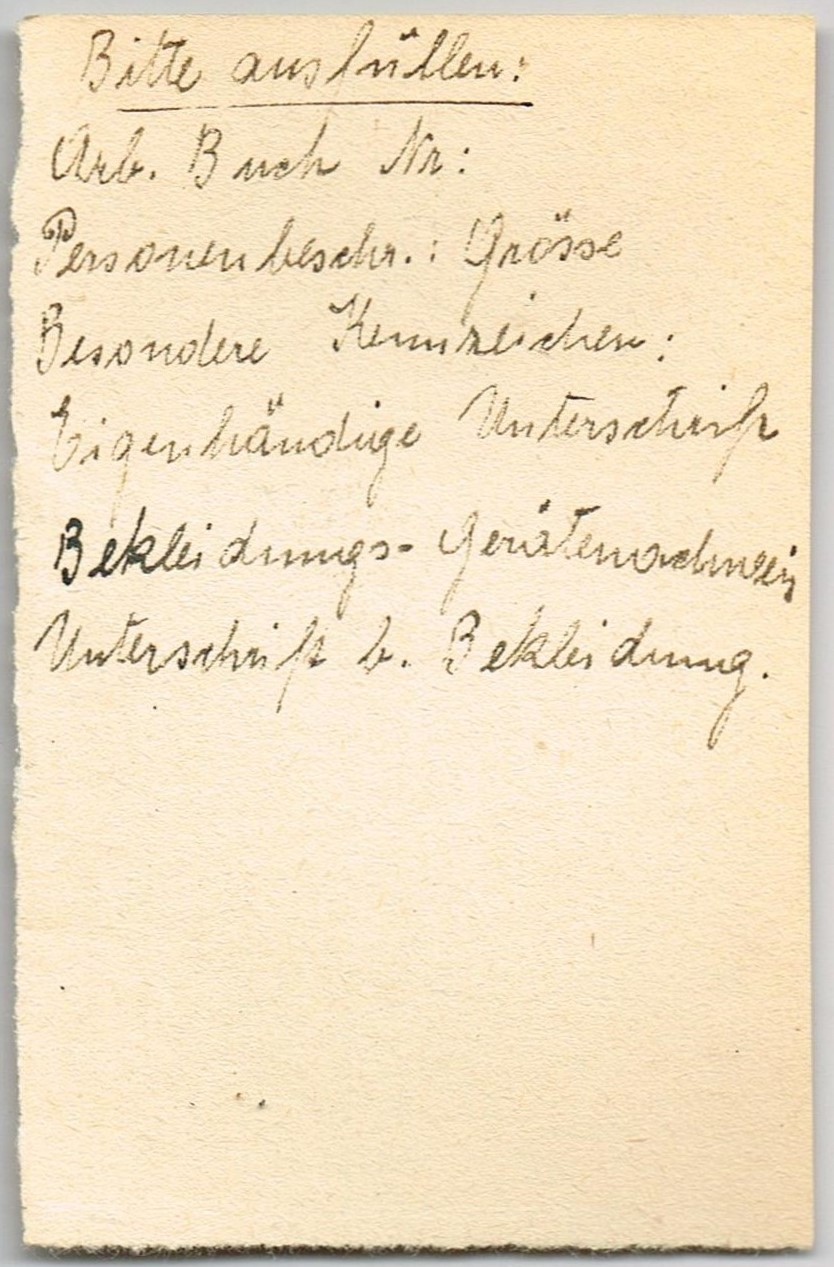 Bitte ausfüllen:
Arb. Buch Nr:
Personenbeschr.: Grösse
Besondere Kennzeichen:
Eigenhändige Unterschrift
Bekleidungs- Gerätenachweis
Unterschrift b. Bekleidung.